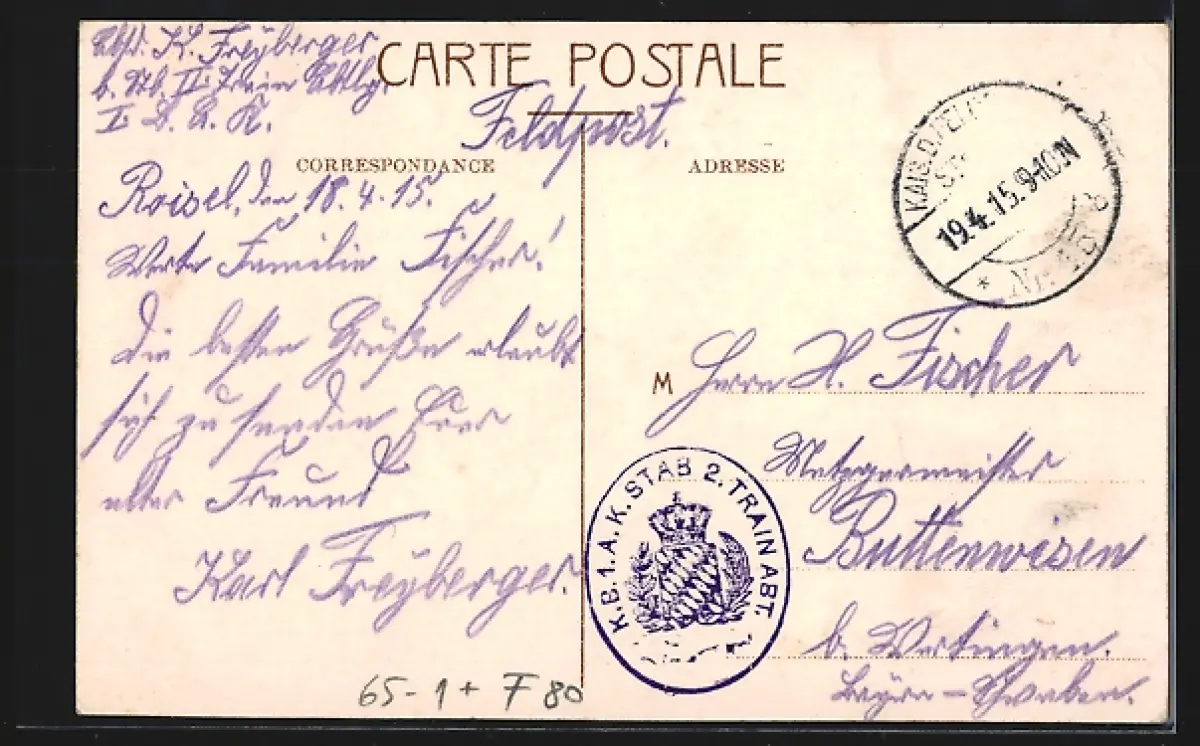 Absd. K. Freyberger
b. Stb. II. Train Abtlg.
I. B. A. K.
CARTE POSTALE
Feldpost.
CORRESPONDANCE
ADRESSE
Roisel, den 18. 4. 15.
Werte Familie Fischer!
Die besten Grüße erlaubt
sich zu senden Euer
alter Freund
Karl Freyberger.
KAIS. D. FEL
19.4.15. 9-10 N
* Nr.
M Herrn H. Fischer
Metzgermeister
Buttenwiesen
b. Wertingen.
Bayern - Schwaben.
K.B.1.A.K. STAB 2. TRAIN ABT.
65-1+ F 80